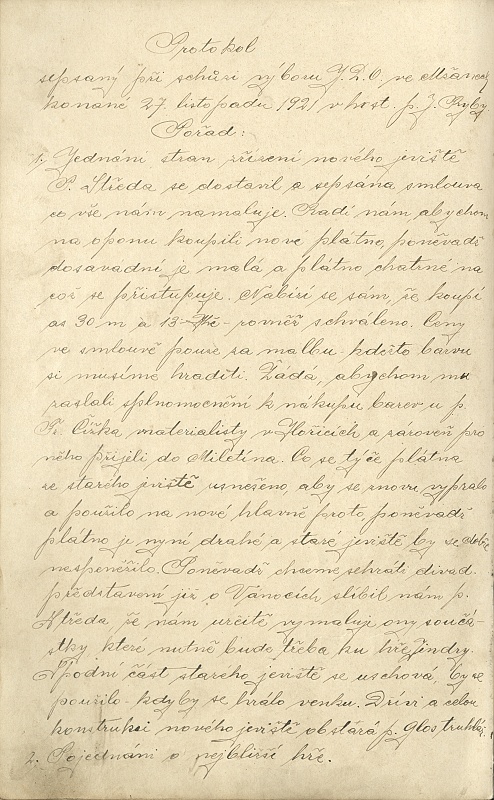 Protokol
sepsaný při schůzi výboru J.D.O. ve Mžanech
konané 27. listopadu 1921 v host. p. J. Ryby
Pořad:
1. Jednání stran zřízení nového jeviště
P. Středa se dostavil a sepsána smlouva
co vše nám namaluje. Radí nám abychom
na oponu koupili nové plátno, poněvadž
dosavádní je malá a plátno chatrné na
což se přistupuje. Nabízí se sám, že koupí
as 30 m a 13 Kč - rovněž schváleno. Ceny
ve smlouvě pouze za malbu - kdežto barvu
si musíme hraditi. Žádá, abychom mu
zaslali splnomocnění k nákupu barev u p.
Fr. Čížka materialisty v Hořicích a zároveň pro
něho přijeli do Miletína. Co se týče plátna
ze starého jeviště usneseno, aby se znovu vypralo
a použilo na nové hlavně proto, poněvadž
plátno je nyní drahé a staré jeviště by se dobře
nespeněžilo. Poněvadž chceme sehráti divad.
představení již o Vánocích slíbil nám p.
Středa, že nám určitě vymaluje ony součá-
stky které nutně bude třeba ku hře Jindry.
Spodní část starého jeviště se uschová, by se
použilo - kdyby se hrálo venku. Dříví a celou
konstrukci nového jeviště obstará p. Glos truhlář.
2. Pojednání o nejbližší hře.